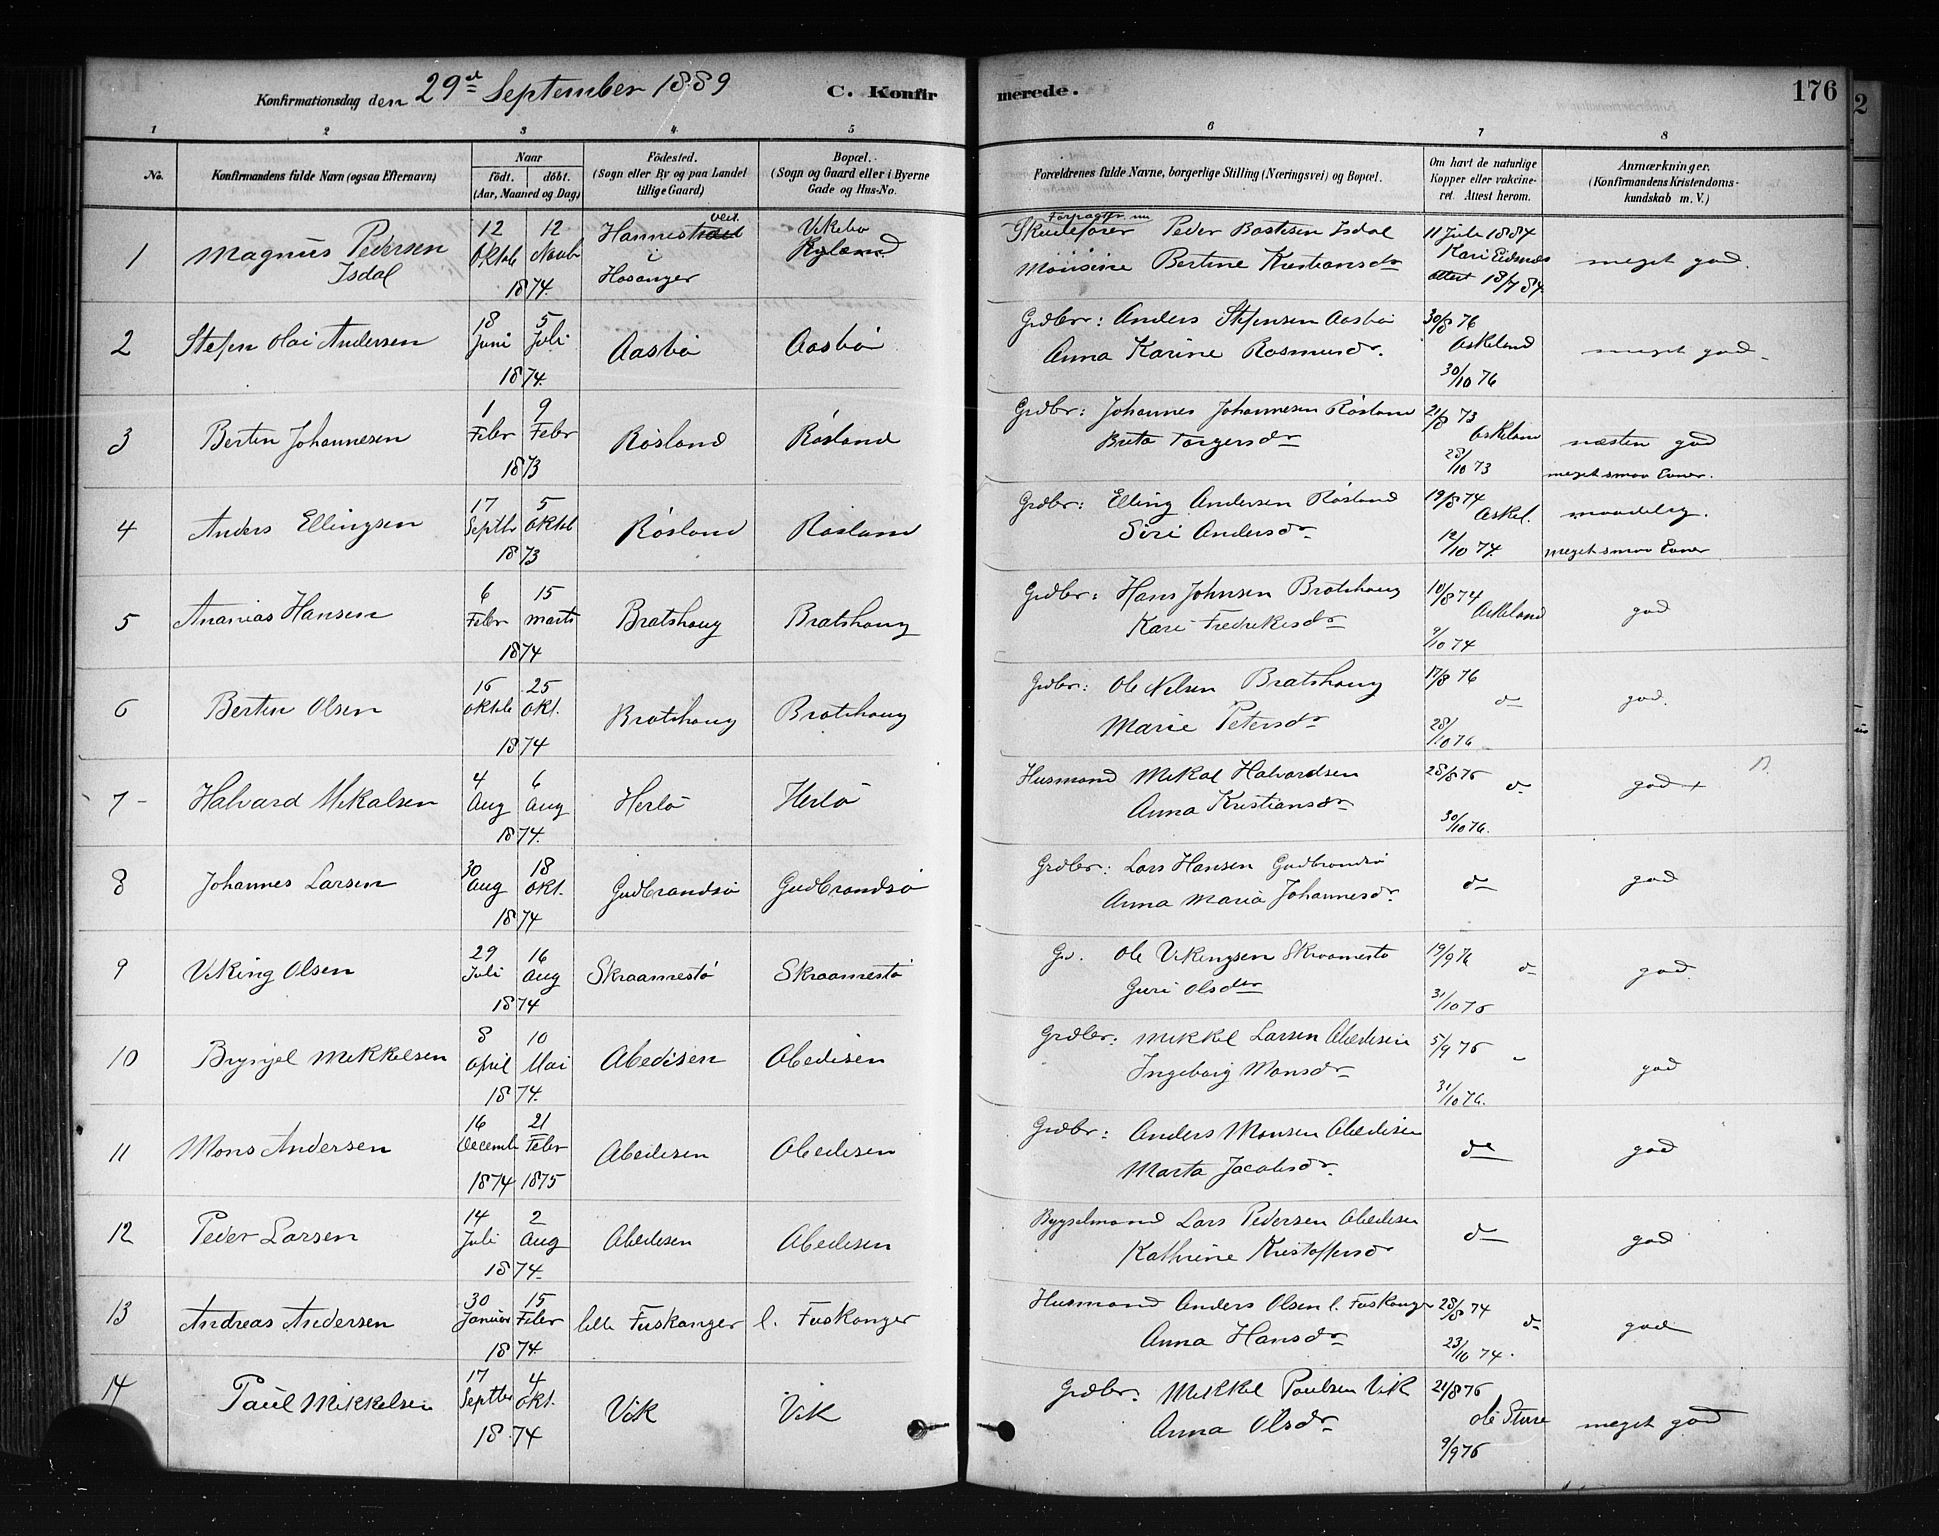 Konfirmationsdag den 29de September 1889 C. Konfirmerede. 176
1 2 3 4 5 6 7 8
No. Konfirmandens fulde Navn (ogsaa Efternavn) Naar födt. döbt. (Aar, Maaned og Dag) Födested. (Sogn eller By og paa Landet tillige Gaard) Bopæl. (Sogn og Gaard eller i Byerne Gade og Hus-No. Forældrenes fulde Navne, borgerlige Stilling (Næringsvei) og Bopæl. Om havt de naturlige Kopper eller vakcineret. Attest herom. Anmærkninger. (Konfirmandens Kristendomskundskab m. V.)
1 Magnus Pedersen Isdal 12 Oktob 12 Novb 1874. i Hosanger Vikebø Skudefører Peder Bastesen Isdal
Monsine Bertine Kristiansdr 11 Juli 1884 Kari Eidsnes attest 13/7 84. meget god.
2 Steffen Olai Andersen 18 Juni 5 Juli 1874. Aasbø Aasbø Grdbr: Anders Stefensen Aasbø
Anna Karine Rasmusdr. 30/8 76 Askeland 30/10 76 meget god
3 Bertin Johannesen 1 Febr 9 Febr 1873 Røsland Røsland Grdbr: Johannes Johannesen Røsland
Brita Torgersdr 21/8 73 Askeland 28/10 73 næsten god
meget smaa Evner.
4 Anders Ellingsen 17 Septbr 5 Oktob 1873 Røsland Røsland Grdbr: Elling Andersen Røsland
Siri Andersdr 19/8 74 Askel. 12/10 74. maadelig.
meget smaa Evner
5 Ananias Hansen 6 Febr 15 Marts 1874 Bratshaug Bratshaug Grdbr: Hans Johnsen Bratshaug
Kari Fredrikesdr 10/8 74 Askeland 9/10 74 god
6 Bertin Olsen 16 Oktob 25 Okt. 1874 Bratshaug Bratshaug Grdbr: Ole Nelsen Bratshaug
Marie Petersdr 17/8 76 do 28/10 76 god.
7 Halvard Mikalsen 4 Aug 6 Aug 1874. Herlø Herlø Husmand Mikal Halvardsen
Anna Kristiansdr 28/8 76 do 30/10 76. god +
8 Johannes Larsen 30 Aug 18 Okt. 1874 Gudbrandsø Gudbrandsø Grdbr: Lars Hansen Gudbrandsø
Anna Maria Johannesdr. do god
9 Viking Olsen 29 Juli 16 Aug 1874 Skraamestø Skraamestø Gr. Ole Vikingsen Skraamestø
Guri Olsdtr 19/9 76 do 31/10 76 god
10 Brynjel Mikkelsen 8 April 10 Mai 1874. Abedisen Abedisen Grdbr. Mikkel Larsen Abedisen
Ingeborg Monsdr 5/9 76 31/10 76. god
11 Mons Andersen 16 Decemb 1874 21 Febr 1875 Abedisen Abedisen Grdbr: Anders Monsen Abedisen
Marta Jacobsdr. do god
12 Peder Larsen 14 Juli 2 Aug 1874. Abedisen Abedisen Bygselmand Lars Pedersen Abedisen
Kathrine Kristoffersdr do god
13 Andreas Andersen 30 Januar 15 Febr 1874. lille Fuskanger l. Fuskanger Husmand Anders Olsen l. Fuskanger
Anna Hansdr 28/8 74 do 23/10 74. god
14 Paul Mikkelsen 17 Septbr 4 Okt. 1874 Vik Vik Grdbr. Mikkel Paulsen Vik
Anna Olsdr 21/8 76 Ole Sture 9/9 76 meget god